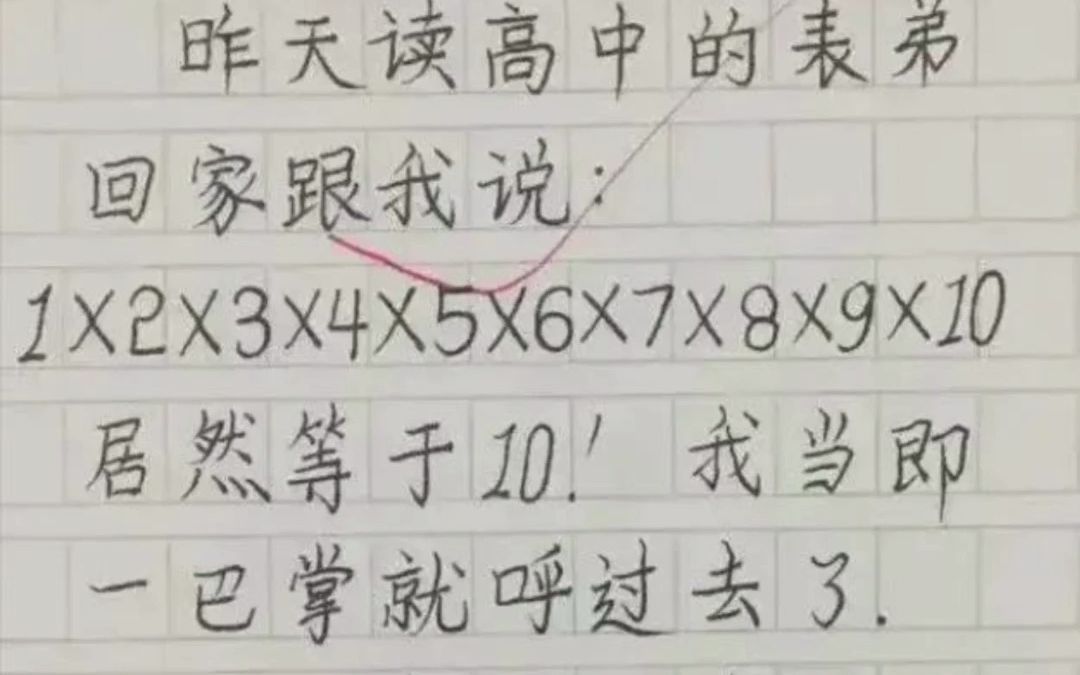 昨天读高中的表弟
回家跟我说:
1×2×3×4×5×6×7×8×9×10
居然等于10! 我当即
一巴掌就呼过去了.